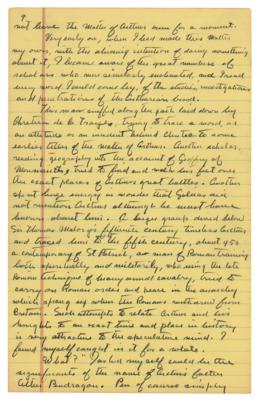 9
not leave the Matter of Arthur even for a moment.
Very early on, when I had made this Matter
my own, with the shining intention of doing something
about it, I became aware of the great numbers of
scholars who were similarly enchanted, and I read
every word I could come by, of the studies, investigations
and penetrations of the Arthurian
One man sniffed along the path laid down by
Chretien de trying to trace a word, or
an attitude or an incident
earlier of the matter of Arthur. Another scholar,
reading geography into the account of Geoffrey of
Monmouth, tried to find and his feet over
the exact places of Arthur's great battles. Another
spent huge energy in wonder that Gildas did
not mention Arthur although he must have
known about him. A larger group dived below
Sir Thomas Malory's fifteenth century timeless Arthur
and traced him to the fifth century, about 450
a contemporary of St Patrick, a man of Roman training
both and military, who using the late
Roman of heavy armed cavalry, tried to
carry on Roman order and peace in the anarchy
which sprang up when the Romans withdrew from
Britain. Such attempts to relate Arthur and his
knights to an exact time and place in history
is very attractive to the speculative mind. I
found myself caught in it for a while.
What? I asked myself could be the
significance of the name of Arthur's father
Uther Pendragon. Pen of course simply